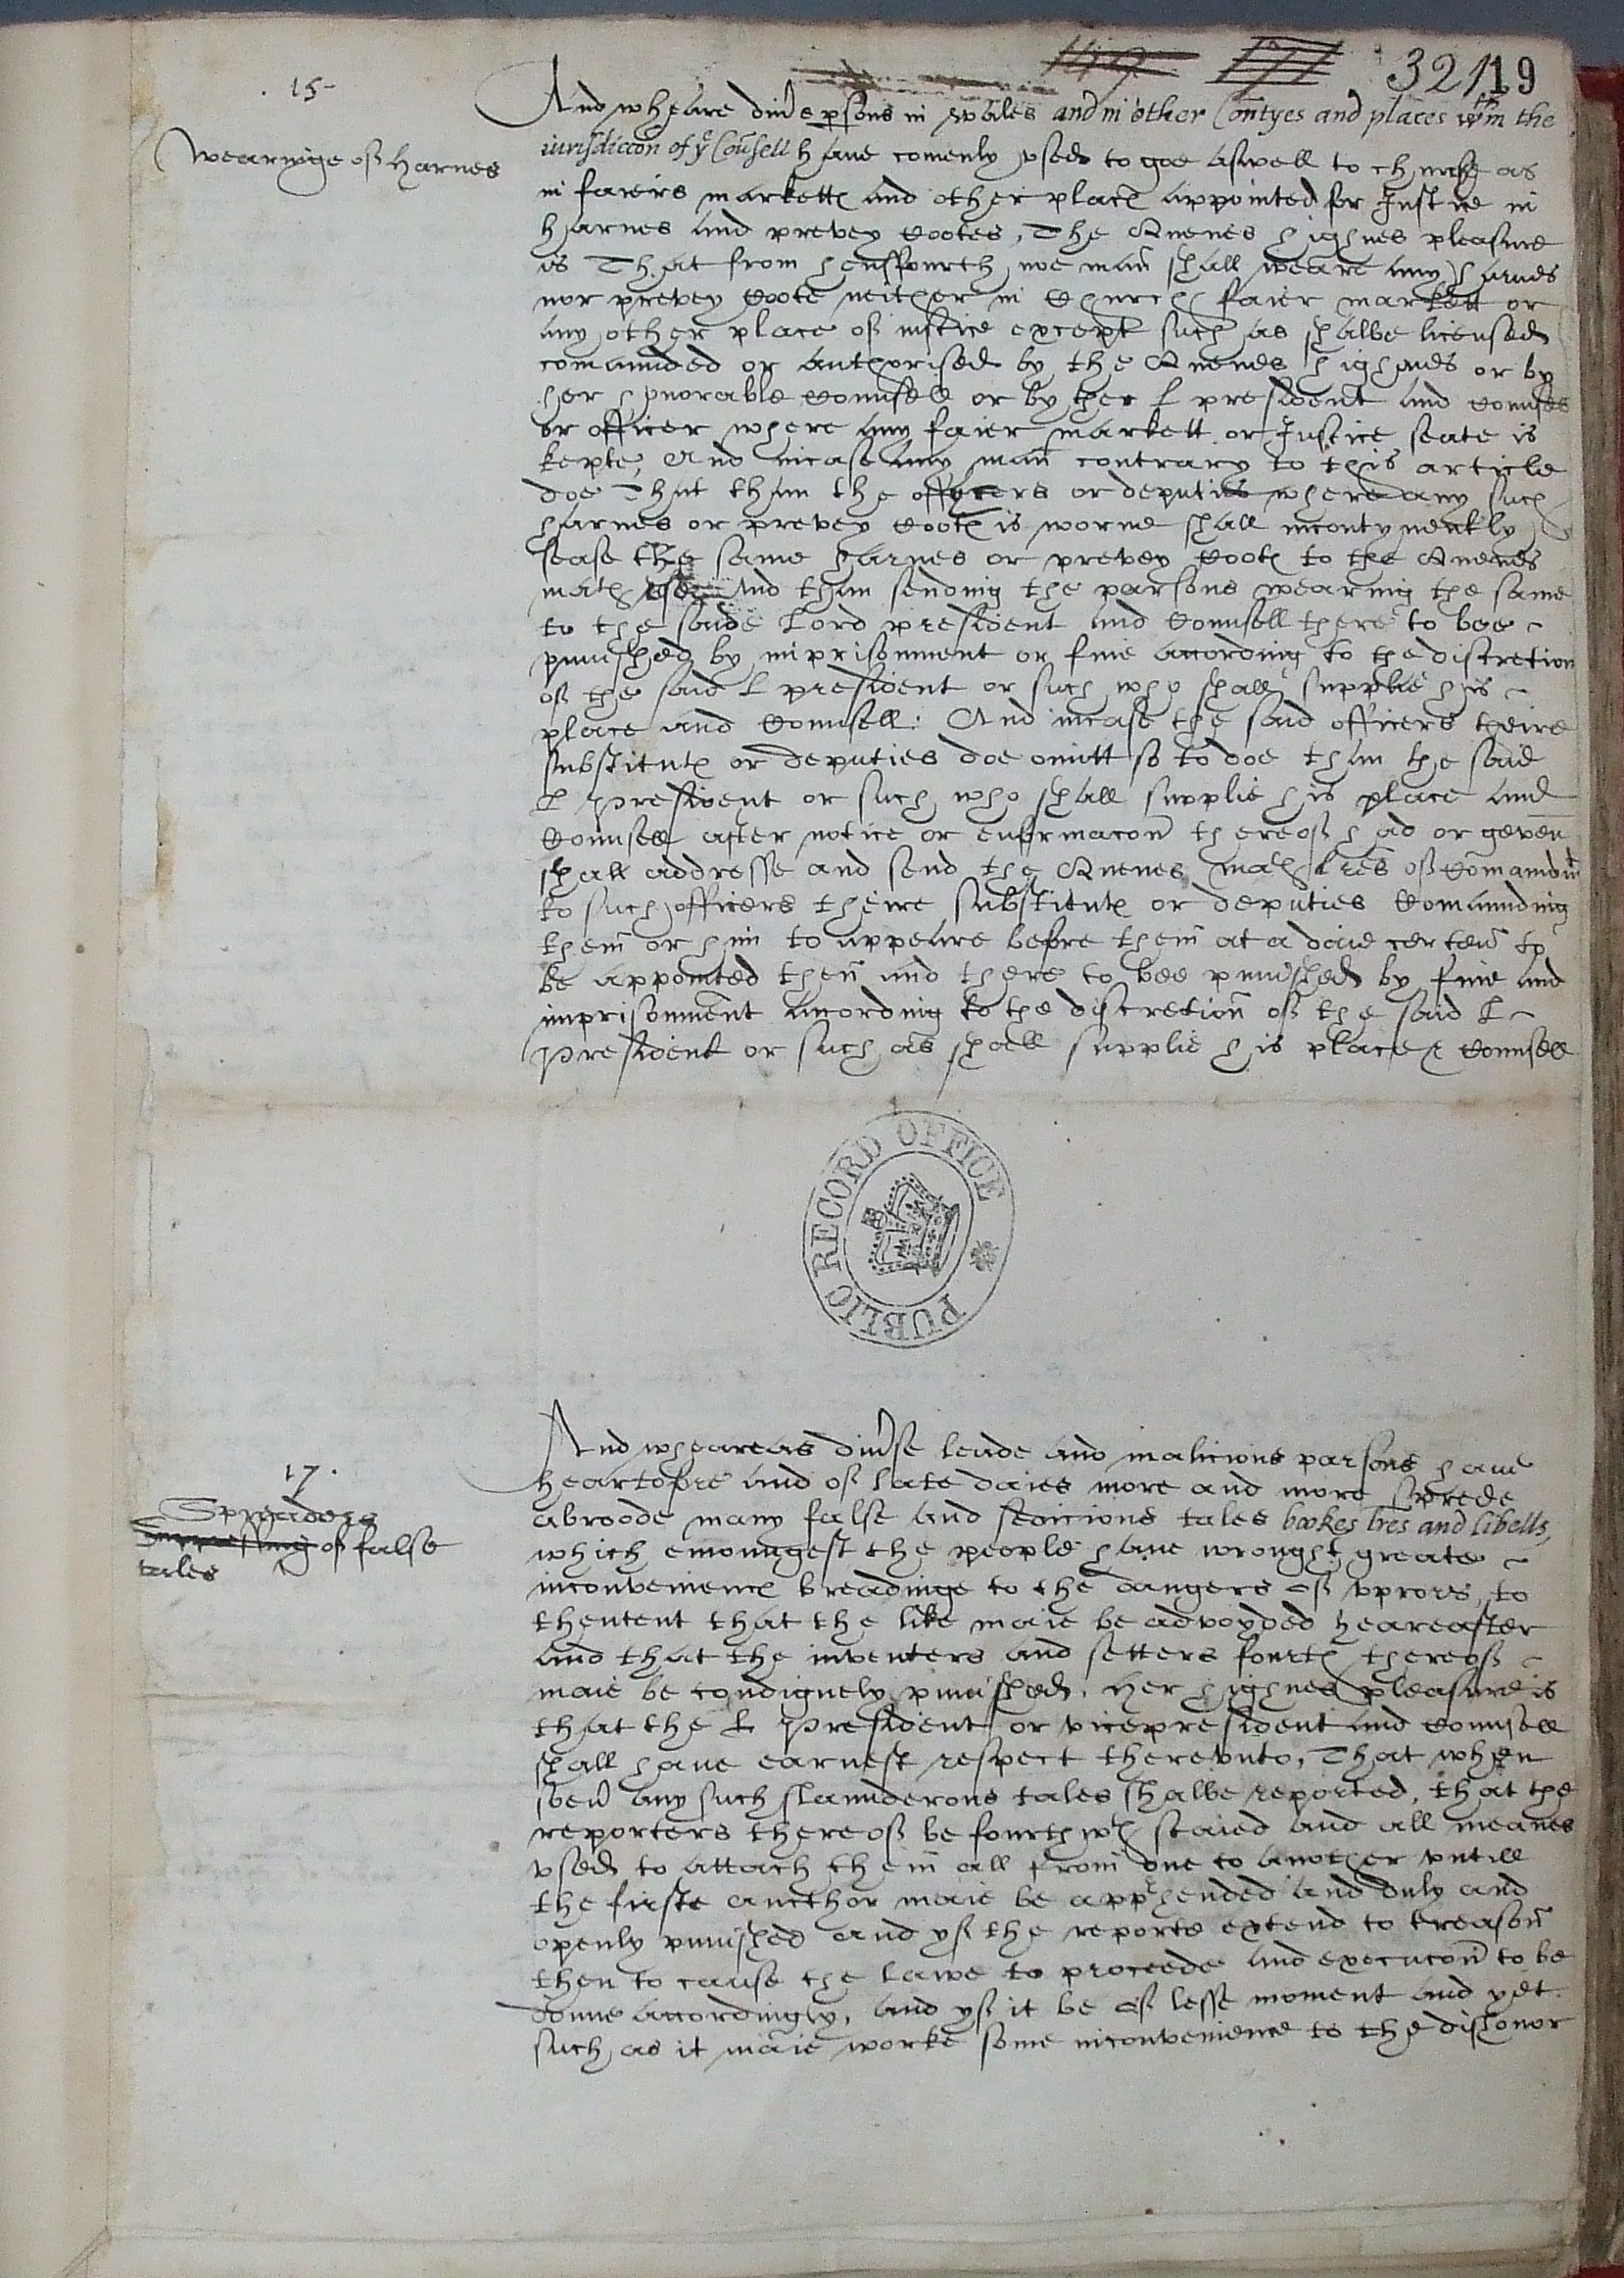 32 119
15
And wheare div's p'sons in Wales and in other Contyes and places wthin the
Wearinge of harnes
iurisdiccon of ye Counsell have comenly vsed to goe aswell to church as
in faiers markettes and other places appointed for Justice in
harnes and prevey Cootes, The Quenes highnes pleasure
is That from hensffourth noe man shall weare any harnes
nor prevey Coote neither in Church faier markett or
any other place of iustice except such as shalbe licensed
comaunded or authorised by the Quenes highnes or by
her honorable Counsell or by ther L president and Counsell
or officer where any faier markett or Justice seate is
kepte, And incase any man contrary to this article
doe That than the officers or deputies where any such
harnes or prevey Cootes is worne shall incontynently
sease the same harnes or prevey Cootes to the Quenes
mates vse And than sending the parsons wearing the same
to the saide Lord president and Counsell there to bee
punished by inprisonment or fine according to the discretion
of the said L president or such who shall supplie his
place and Counsell. And incase the said officers theire
substitutes or deputies doe omitt so to doe than the said
L President or such who shall supplie his place and
Counsell after notice or enformacon thereof had or geven
shall addresse and send the Quenes mates l'res of Comaundmt
to such officers theire substitutes or deputies Comaunding
them or him to appeare before them at a daie certen to
be appointed then and there to bee punished by fine and
imprisonment according to the discretion of the said L
President or such as shall supplie his place & Counsell
PUBLIC RECORD OFFICE
17.
And wheareas div'se leude and malicious parsons have
heartofore and of late daies more and more sprede
Spreaders
abroode many false and sedicious tales bookes l'res and libells,
of false
tales
which emoungest the people have wrought greate
inconveniences breadinge to the dangers of vprors, to
thentent that the like maie be advoyded heareafter
and that the inventers and setters fourth thereof
maie be condignely punished. Her highnes pleasure is
that the L President or vicepresident and Counsell
shall have earnest respect therevnto, That when
soev' any such slaunderous tales shalbe reported, that the
reporters thereof be fourthwth staied and all meanes
vsed to attach them all from one to another vntill
the firste aucthor maie be app'hended and duly and
openly punished and yf the reporte extend to treason
then to cause the lawe to proceede and execucon to be
donne accordingly, and yf it be of lesse moment and yet
such as it maie worke some inconvenience to the dishonor